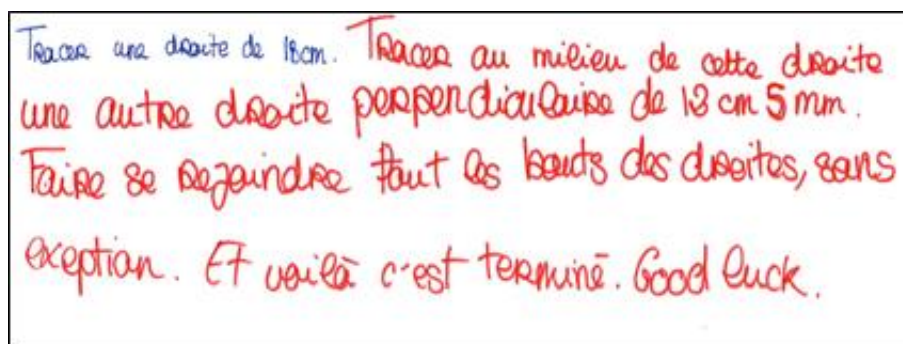 Tracer une droite de 18cm. Tracer au milieu de cette droite
une autre droite perpendiculaire de 18 cm 5 mm.
Faire se rejoindre tout les bouts des droites, sans
exeption. Et voilà c'est terminé. Good luck.